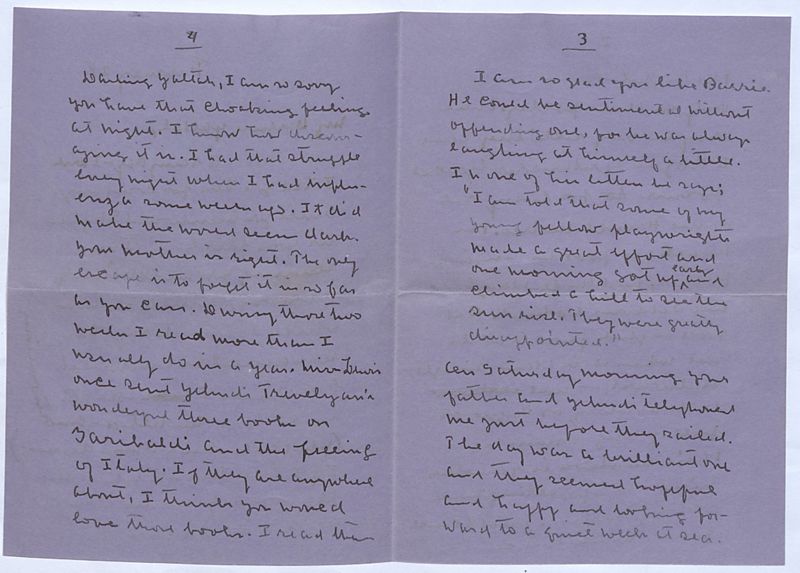 4
Darling Yaltah, I am so sorry
you have that choaking feeling
at night. I know how discour-
aging it is. I had that struggle
every night when I had influ-
enza some weeks ago. It did
make the world seem dark.
Your mother is right. The only
escape is to forget it in so far
as you can. During those two
weeks I read more than I
usually do in a year. Miss Lewis
once sent Yehudi Trevelyan's
wonderful three books on
Garibaldi and the freeing
of Italy. If they are anywhere
about, I think you would
love those books. I read them
3
I am so glad you like Barrie.
He could be sentimental without
offending one, for he was always
laughing at himself a little.
In one of his letters he says;
"I am told that some of my
young fellow playwrights
made a great effort and
one morning got up early and
climbed a hill to see the
sun rise. They were greatly
disappointed."
On Saturday morning your
father and Yehudi telephoned
me just before they sailed.
The day was a brilliant one
and they seemed hopeful
and happy and looking for-
ward to a quiet week at sea.